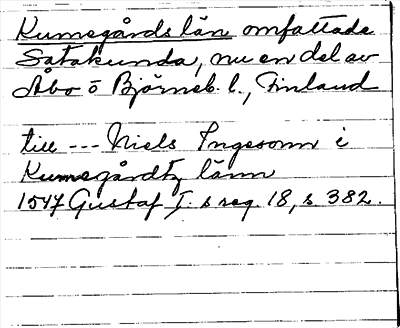 Kumegårds län omfattade
Satakunda, nu en del av
Åbo o Björneb. l., Finland
till --- Niels Ingesonn i
Kumegårdtz länn
1547 Gustaf I. s reg. 18, s. 382.